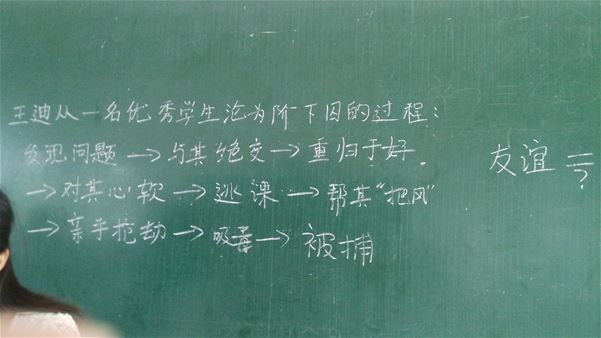 王迪从一名优秀学生沦为阶下囚的过程：
发现问题→与其绝交→重归于好
→对其心软→逃课→帮其“把风”
→亲手抢劫→吸毒→被捕
友谊＝？